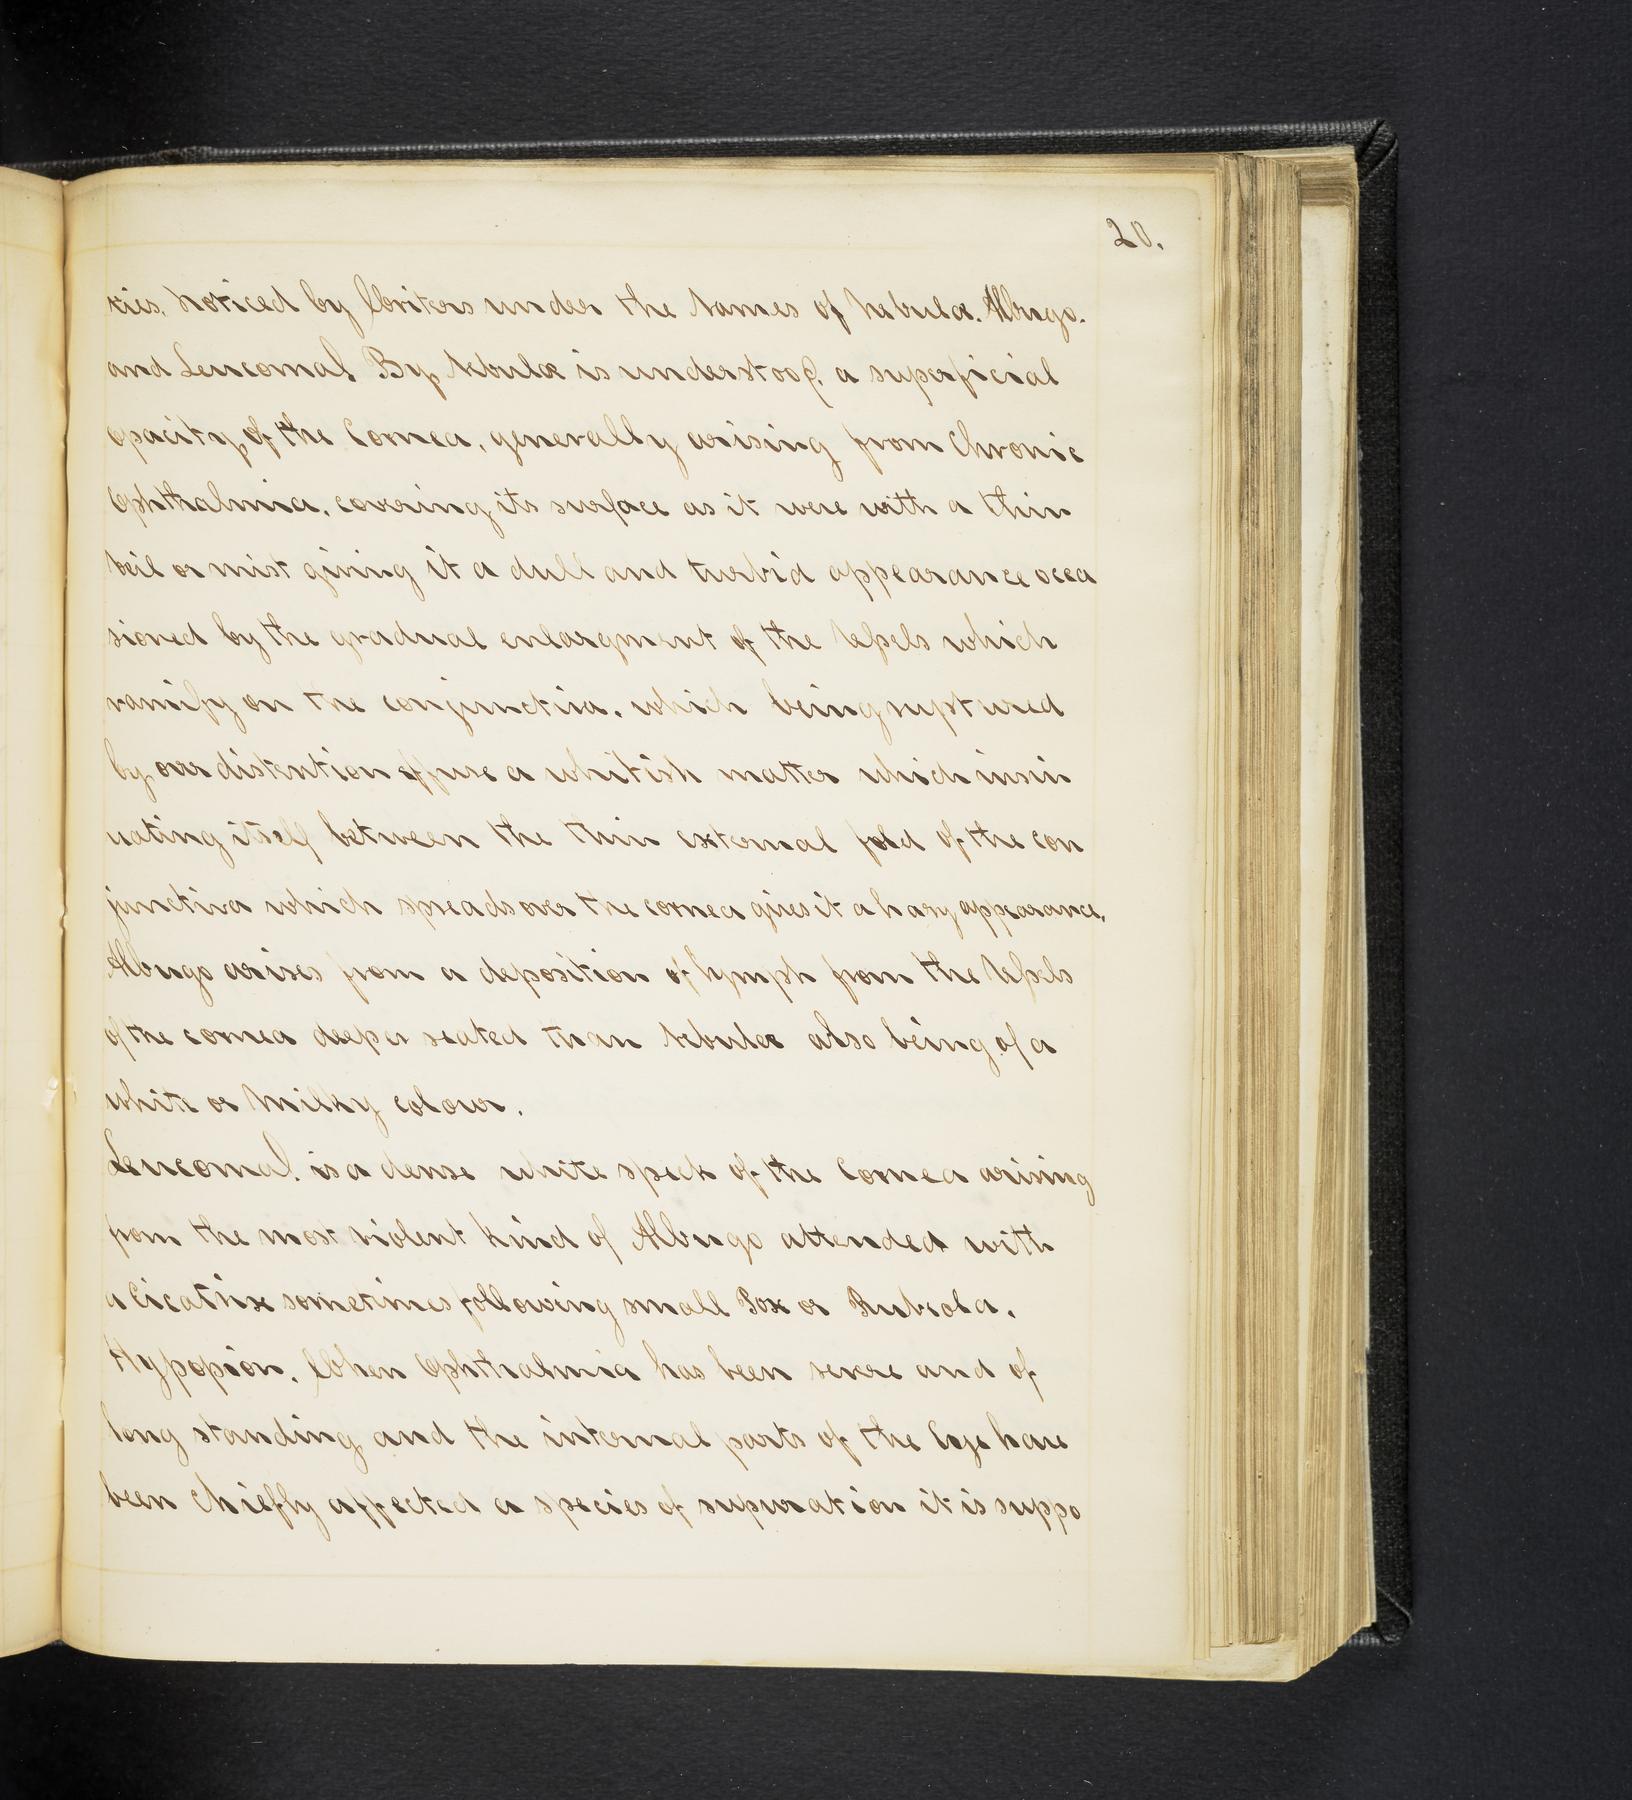 20.
ties, Noticed by Writers under the Names of Nebulæ. Albugo.
and Leucomal. By Nebulæ is understood, a superficial
opacity, of the Cornea, generally arising from Chronic
Ophthalmia, covering its surface as it were with a thin
Veil or mist giving it a dull and turbid appearance occa
sioned by the gradual enlargment of the Vessels which
ramify on the conjunctiva, which being ruptured
by over distention effuse a whitish matter which insin
uating itself between the thin external fold of the con
junctiva which spreads over the cornea gives it a hazy appearance,
Albugo arises from a deposition of lymph from the Vessels
of the cornea deeper seated than Nebulæ also being of a
white or Milky colour.
Leucomal. is a dense white speck of the Cornea arising
from the most violent kind of Albugo attended with
a Cicatrix sometimes following small Pox or Rubeola.
Hypopion. When Ophthalmia has been severe and of
long standing and the internal parts of the Eye have
been Chiefly affected a species of supuration it is suppo